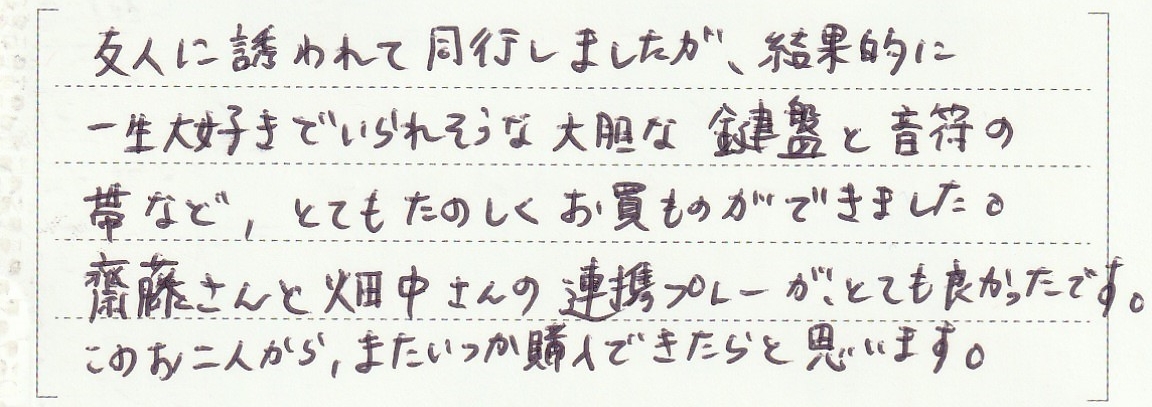 友人に誘われて同行しましたが、結果的に
一生大好きでいられそうな大胆な鍵盤と音符の
帯など，とてもたのしくお買ものができました。
齋藤さんと畑中さんの連携プレーが、とても良かったです。
このお二人から，またいつか購入できたらと思います。